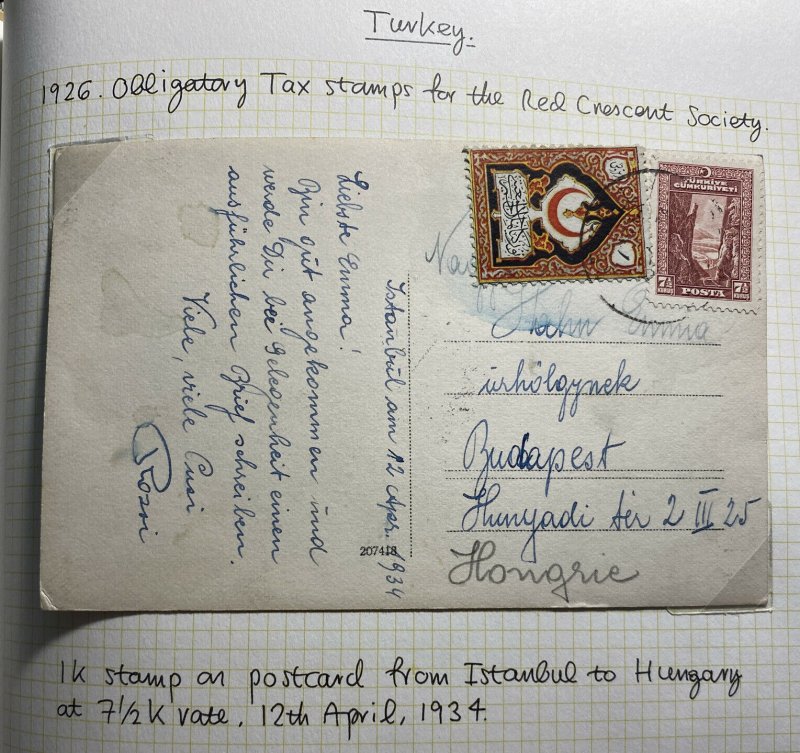 Turkey.
1926. Obligatory Tax stamps for the Red Crescent Society.
Istanbul am 12 Apr. 1934
Liebste Emma!
Bin gut angekommen und
werde Dir bei Gelegenheit einen
ausführlichen Brief schreiben.
Viele, viele Cusi
Rozsi
TÜRKİYE
CÜMHURİYETİ
7½ 7½
KURUŞ POSTA KURUŞ
Hahn Emma
úrhölgynek
Budapest
Hunyadi tér 2 III 25
Hongrie
207418
1K stamp on postcard from Istanbul to Hungary
at 7½K rate. 12th April, 1934.